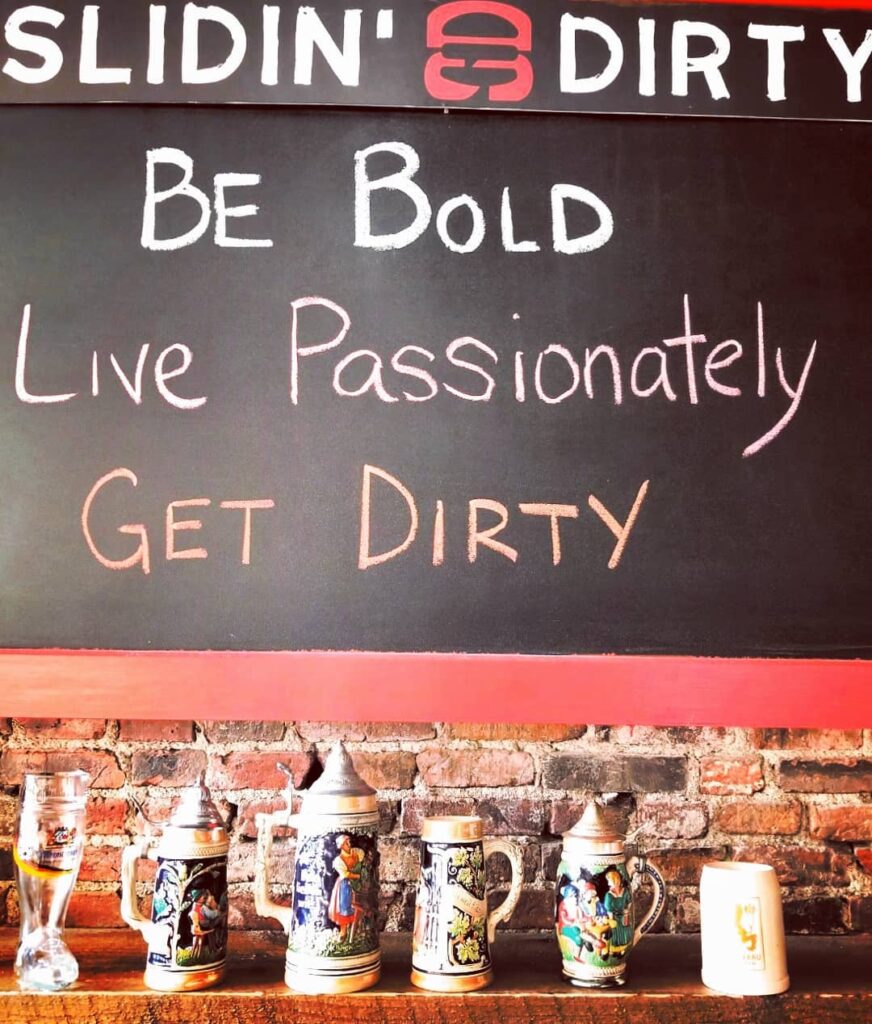 SLIDIN' SD DIRTY
BE BOLD
LIVE PASSIONATELY
GET DIRTY